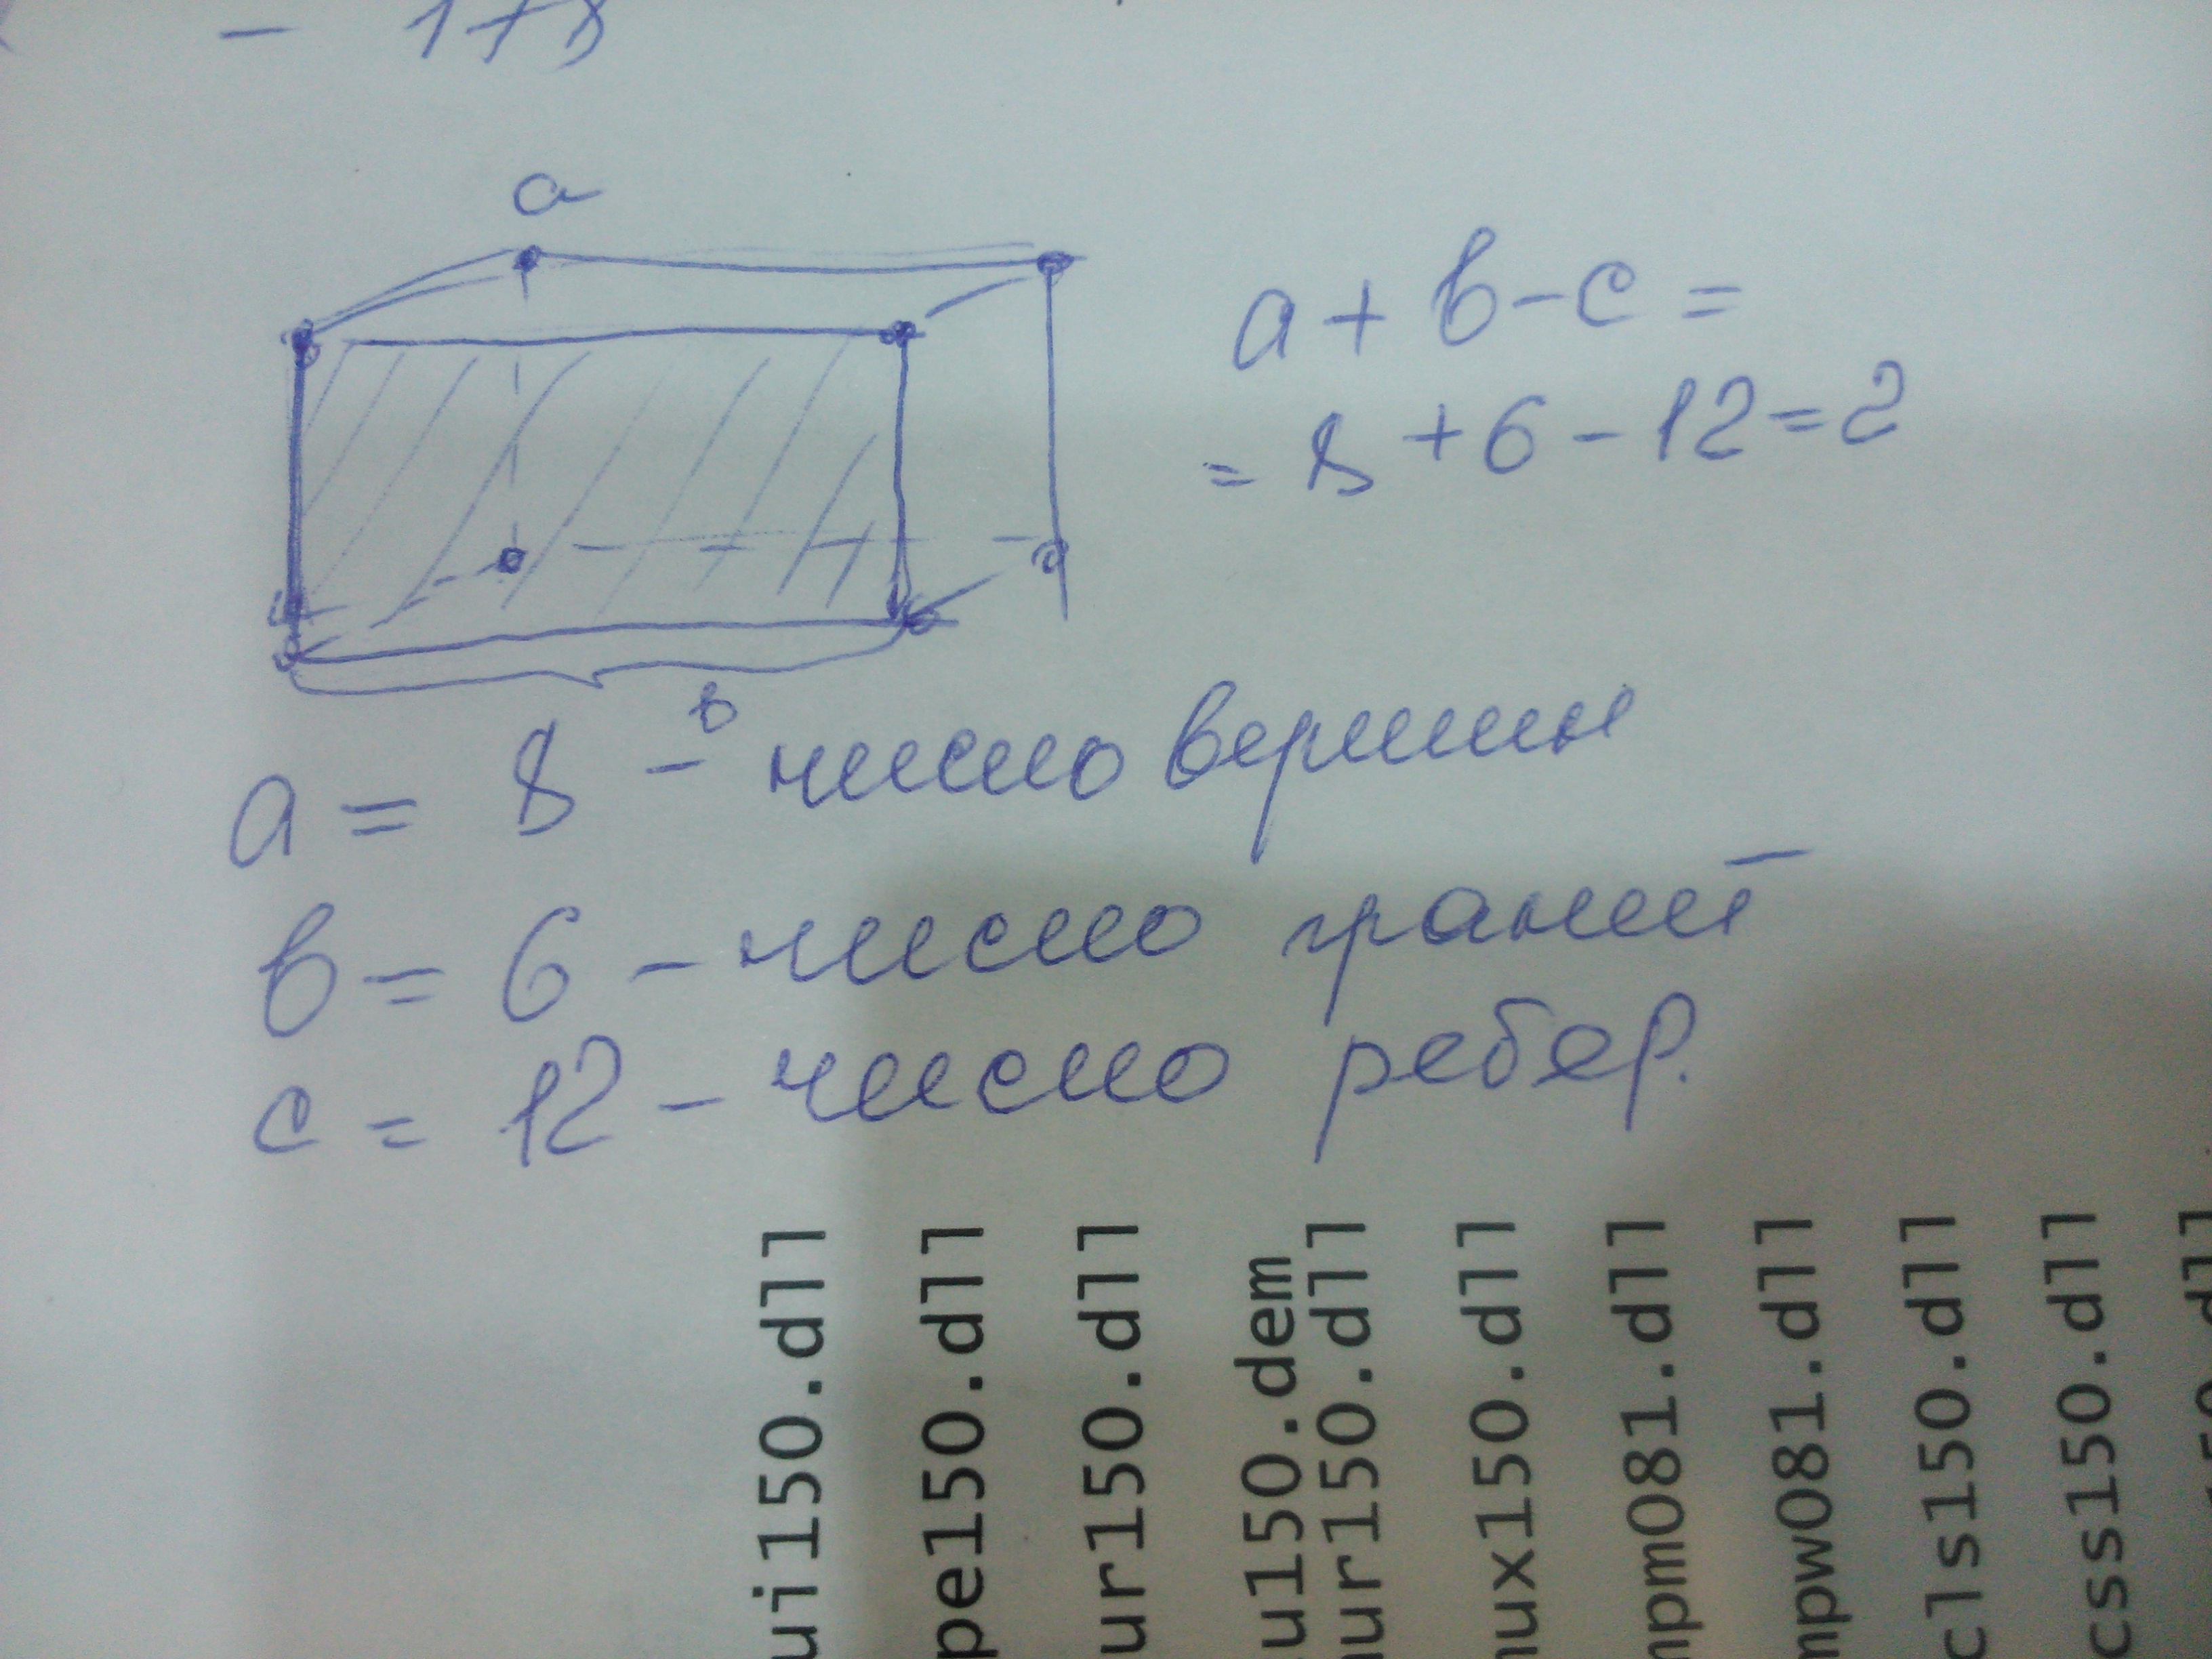 - 178
a
a + b - c =
= 8 + 6 - 12 = 2
b
a = 8 - число вершин
b = 6 - число граней
c = 12 - число ребер.
ui150.dll
pe150.dll
ur150.dll
u150.dem
ur150.dll
mux150.dll
mpm081.dll
mpw081.dll
cls150.dll
css150.dll